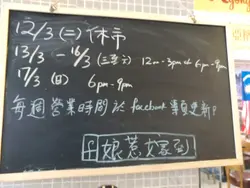 12/3 (二) 休市
13/3 - 16/3 (三至六) 12n - 3pm & 6pm - 9pm
17/3 (日) 6pm - 9pm
每週營業時間於 facebook 專頁更新!
f 娘惹嫁到